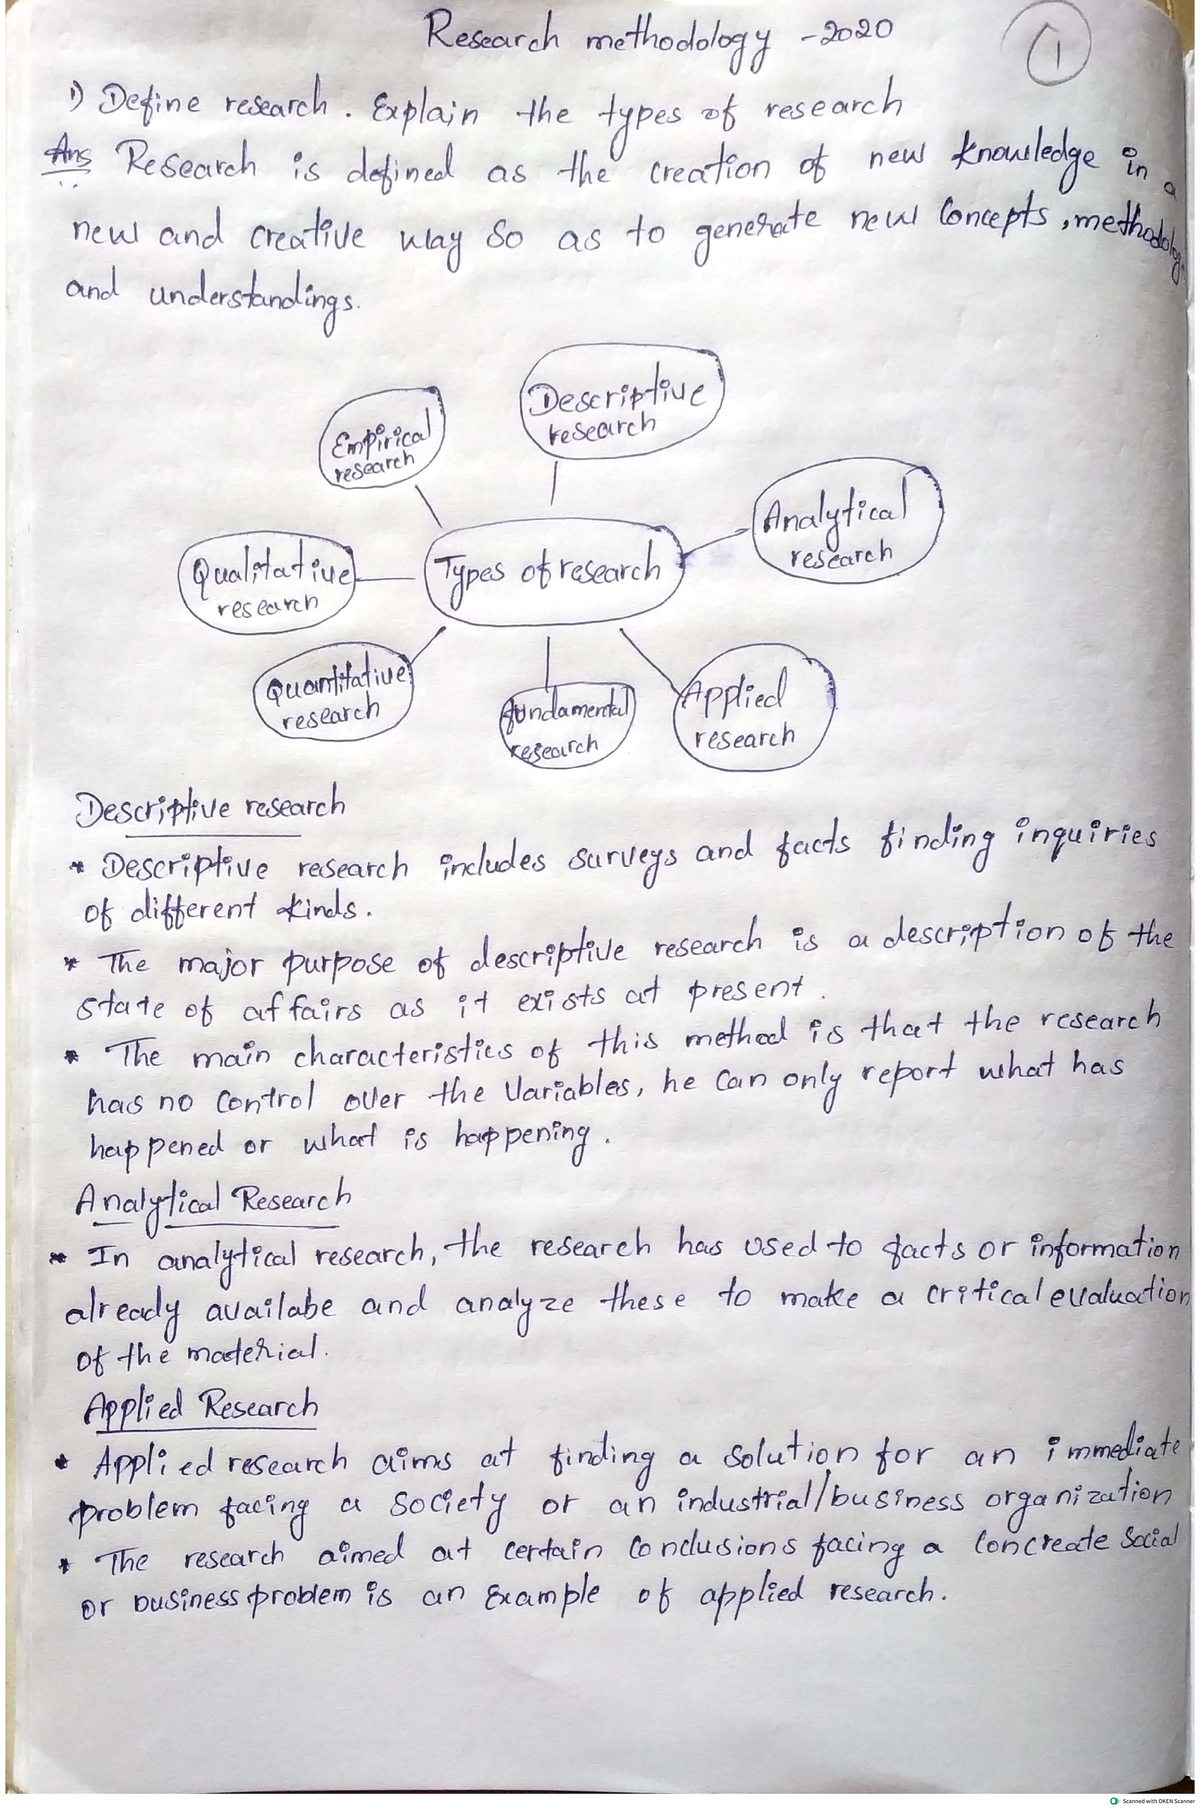 Research methodology -2020
1
1) Define research. Explain the types of research
Ans Research is defined as the creation of new knowledge in a
new and creative way so as to generate new concepts, methodology
and understandings.
Descriptive
research
Empirical
research
Analytical
research
Types of research
Qualitative
research
Quantitative
research
fundamental
research
Applied
research
Descriptive research
* Descriptive research includes surveys and facts finding inquiries
of different kinds.
* The major purpose of descriptive research is a description of the
state of affairs as it exists at present.
* The main characteristics of this method is that the research
has no control over the variables, he can only report what has
happened or what is happening.
Analytical Research
* In analytical research, the research has used to facts or information
already availabe and analyze these to make a critical evaluation
of the material.
Applied Research
* Applied research aims at finding a solution for an immediate
problem facing a society or an industrial/business organization
* The research aimed at certain conclusions facing a concreate social
or business problem is an example of applied research.
Scanned with OKEN Scanner